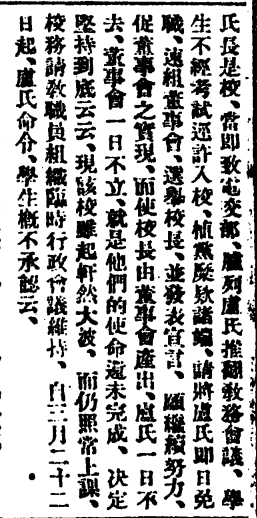 氏長是校、當即致電交部、臚列盧氏推翻敎務會議、學
生不經考試逕許入校、植黨營欵諸端、請將盧氏卽日免
職、速組董事會、選舉校長、並發表宣言、願繼續努力、
促董事會之實現、而使校長由董事會產出、盧氏一日不
去、董事會一日不立、就是他們的使命還未完成、决定
堅持到底云云、現該校雖起軒然大波、而仍照常上課、
校務請敎職員組織臨時行政會議維持、自三月二十二
日起、盧氏命令、學生槪不承認云、